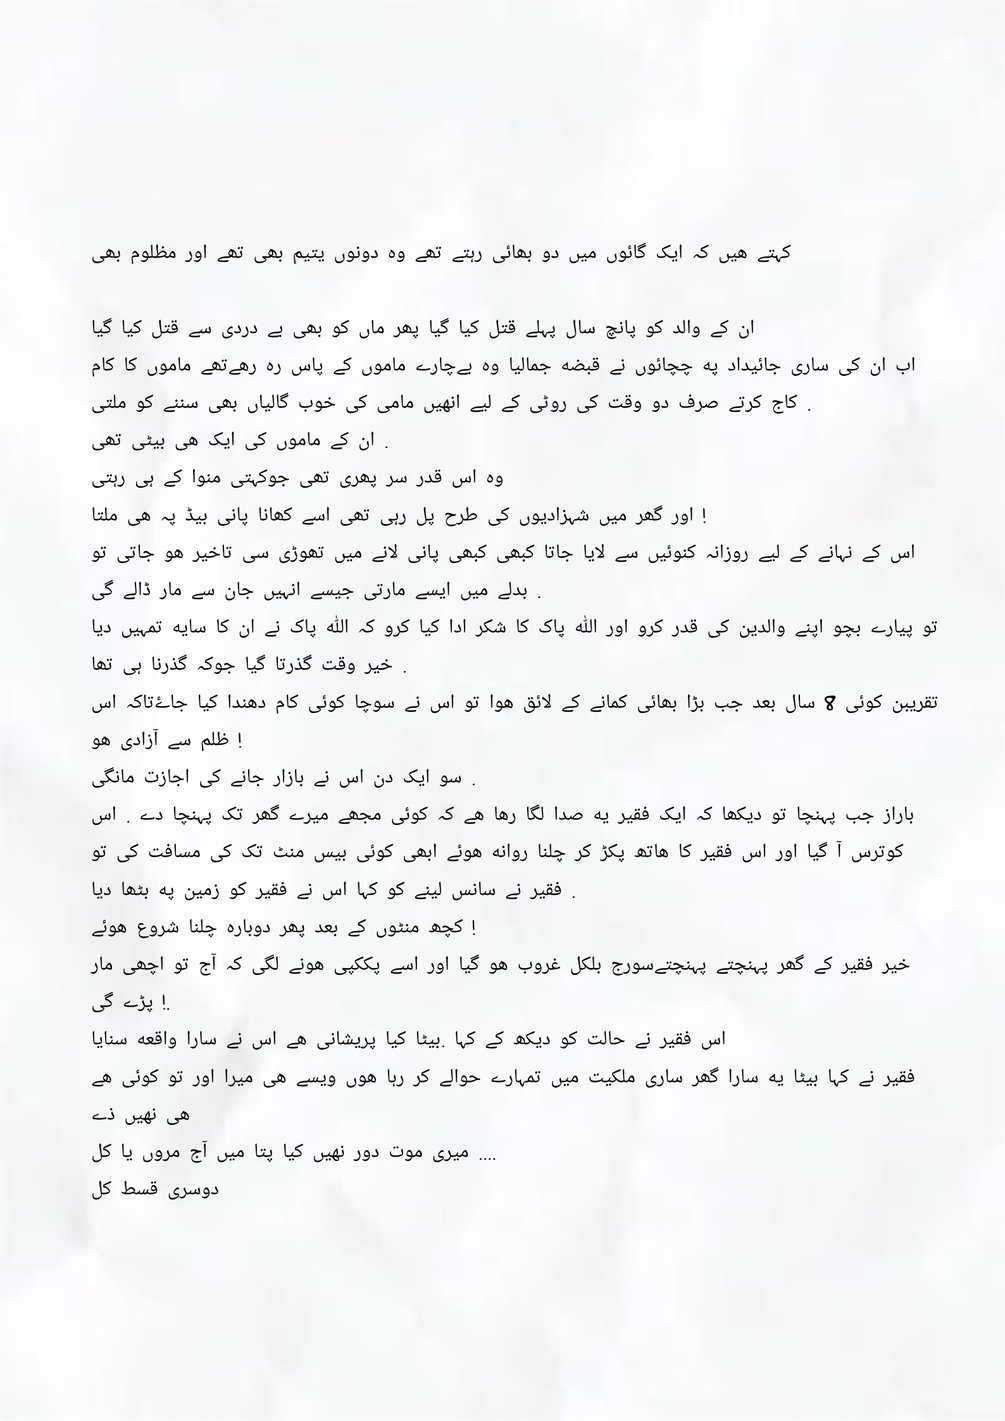 کہتے ھیں کہ ایک گائوں میں دو بھائی رہتے تھے وہ دونوں یتیم بھی تھے اور مظلوم بھی
ان کے والد کو پانچ سال پہلے قتل کیا گیا پھر ماں کو بھی بے دردی سے قتل کیا گیا
اب ان کی ساری جائیداد پہ چچائوں نے قبضہ جمالیا وہ بےچارے ماموں کے پاس رہ رھےتھے ماموں کا کام
کاج کرتے صرف دو وقت کی روٹی کے لیے انھیں مامی کی خوب گالیاں بھی سننے کو ملتی .
ان کے ماموں کی ایک ھی بیٹی تھی .
وہ اس قدر سر پھری تھی جوکہتی منوا کے ہی رہتی
اور گھر میں شہزادیوں کی طرح پل رہی تھی اسے کھانا پانی بیڈ پہ ھی ملتا !
اس کے نہانے کے لیے روزانہ کنوئیں سے لایا جاتا کبھی کبھی پانی لانے میں تھوڑی سی تاخیر ھو جاتی تو
بدلے میں ایسے مارتی جیسے انہیں جان سے مار ڈالے گی .
تو پیارے بچو اپنے والدین کی قدر کرو اور اللہ پاک کا شکر ادا کیا کرو کہ اللہ پاک نے ان کا سایہ تمہیں دیا
خیر وقت گذرتا گیا جوکہ گذرنا ہی تھا .
تقریبن کوئی 8 سال بعد جب بڑا بھائی کمانے کے لائق ھوا تو اس نے سوچا کوئی کام دھندا کیا جاۓتاکہ اس
ظلم سے آزادی ھو !
سو ایک دن اس نے بازار جانے کی اجازت مانگی .
باراز جب پہنچا تو دیکھا کہ ایک فقیر یہ صدا لگا رھا ھے کہ کوئی مجھے میرے گھر تک پہنچا دے . اس
کوترس آ گیا اور اس فقیر کا ھاتھ پکڑ کر چلنا روانہ ھوئے ابھی کوئی بیس منٹ تک کی مسافت کی تو
فقیر نے سانس لینے کو کہا اس نے فقیر کو زمین پہ بٹھا دیا .
کچھ منٹوں کے بعد پھر دوبارہ چلنا شروع ھوئے !
خیر فقیر کے گھر پہنچتے پہنچتےسورج بلکل غروب ھو گیا اور اسے پککپی ھونے لگی کہ آج تو اچھی مار
پڑے گی !.
اس فقیر نے حالت کو دیکھ کے کہا .بیٹا کیا پریشانی ھے اس نے سارا واقعہ سنایا
فقیر نے کہا بیٹا یہ سارا گھر ساری ملکیت میں تمہارے حوالے کر رہا ھوں ویسے ھی میرا اور تو کوئی ھے
ھی نھیں ذے
میری موت دور نھیں کیا پتا میں آج مروں یا کل ....
دوسری قسط کل